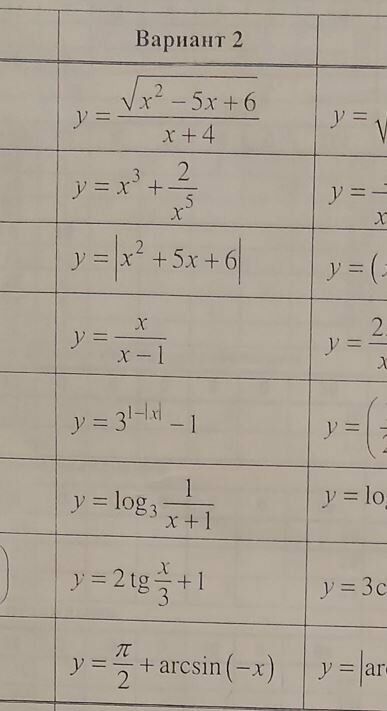 Вариант 2
y = √(x² − 5x + 6) / (x + 4)
y = √
y = x³ + 2/x⁵
y = 
x
y = |x² + 5x + 6|
y = (
y = x/(x − 1)
y = 2
x
y = 3^(1−|x|) − 1
y = (
2
y = log₃ 1/(x + 1)
y = lo
)
y = 2 tg x/3 + 1
y = 3c
y = π/2 + arcsin(−x)
y = |ar